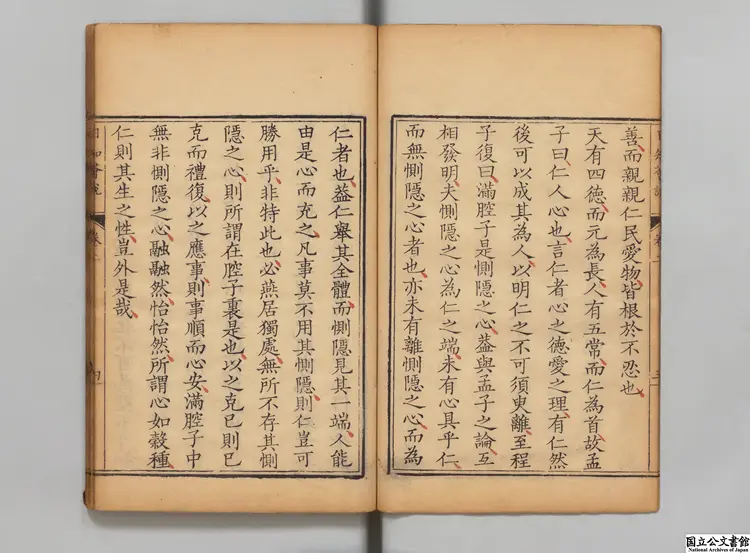 善而親親仁民愛物皆根於不忍也
天有四德而元為長人有五常而仁為首故孟
子曰仁人心也言仁者心之德愛之理有仁然
後可以成其為人以明仁之不可須臾離至程
子復曰滿腔子是惻隱之心葢與孟子之論互
相發明夫惻隱之心為仁之端未有心具乎仁
而無惻隱之心者也亦未有離惻隱之心而為
仁者也葢仁舉其全體而惻隱見其一端人能
由是心而充之凡事莫不用其惻隱則仁豈可
勝用乎非特此也必燕居獨處無所不存其惻
隱之心則所謂在腔子裏是也以之克已則已
克而禮復以之應事則事順而心安滿腔子中
無非惻隱之心融融然怡怡然所謂心如穀種
仁則其生之性豈外是哉
日知薈說
卷二
四
国立公文書館
National Archives of Japan